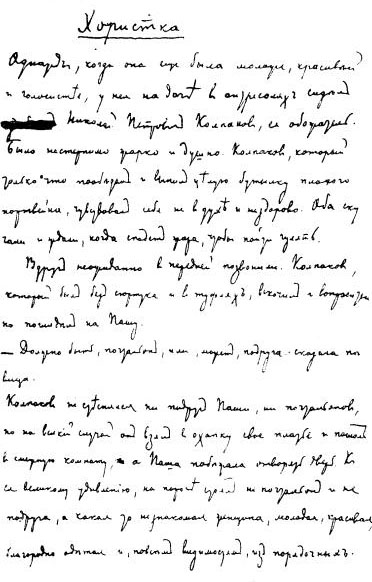 Хористка
Однажды, когда она еще была моложе, красивей
и голосистѣе, у нея на дачѣ в антресоляхъ сидѣл
Николай Петрович Колпаков, ея обожатель.
Было нестерпимо жарко и душно. Колпаков, который
только что пообѣдал и выпил цѣлую бутылку плохого
портвейна, чувствовал себя не в духѣ и нездорово. Оба ску
чали и ждали, когда спадет жара, чтобы пойти гулять.
Вдруг неожиданно в передней позвонили. Колпаков,
который был без сюртука и в туфлях, вскочил и вопросительно
но поглядѣл на Пашу.
— Должно быть, почтальон, или, может, подруга - сказала пѣ
вица.
Колпаков не стѣснялся ни подруг Паши, ни почтальонов,
но на всякий случай он взял в охапку свое платье и пошел
в смежную комнату, а Паша побѣжала отворять дверь. К
ея великому удивлению, на порогѣ стоял не почтальон и не
подруга, а какая то незнакомая женщина, молодая, красивая,
благородно одѣтая и, по всѣм видимостям, из порядочных.